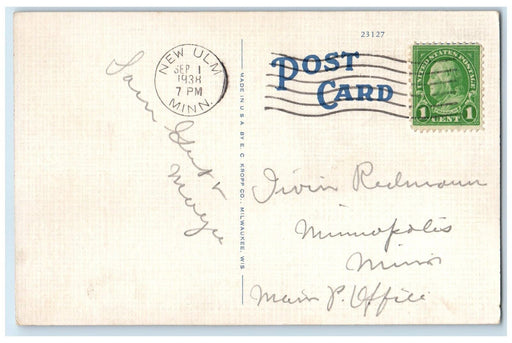 23127
POST CARD
NEW ULM
SEP 1
1938
7 PM
MINN.
UNITED STATES POSTAGE
1 CENT 1
MADE IN U.S.A. BY E. C. KROPP CO., MILWAUKEE, WIS.
Irvin Redmann
Minneapolis
Minn
Main P. Office